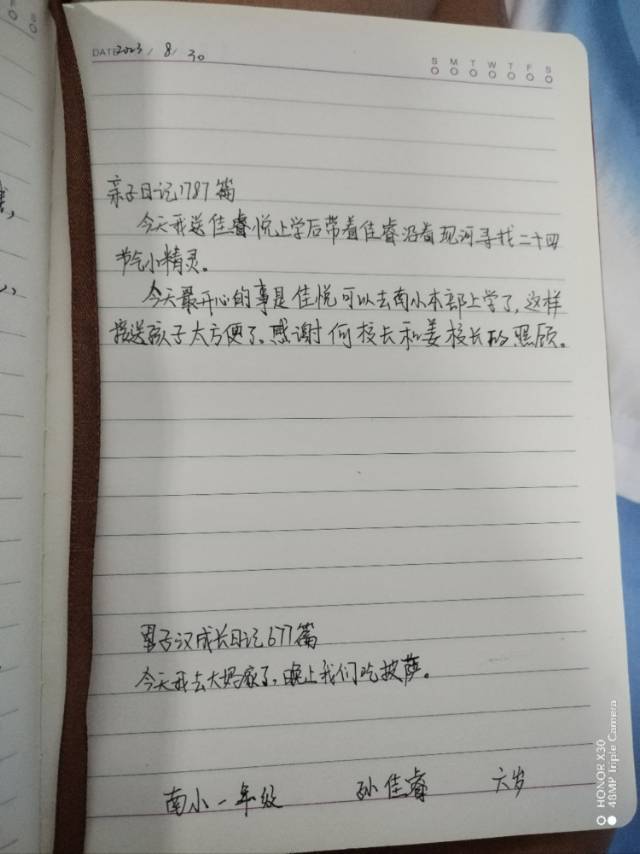 DATE 2023 / 8 / 30
S M T W T F S
亲子日记1787篇
今天我送佳睿悦上学后带着佳睿沿着现河寻找二十四
节气小精灵。
今天最开心的事是佳悦可以去南小本部上学了,这样
接送孩子太方便了。感谢何校长和姜校长的照顾。
男子汉成长日记677篇
今天我去大妈家了,晚上我们吃披萨。
南小一年级 孙佳睿 六岁
HONOR X30
48MP Triple Camera